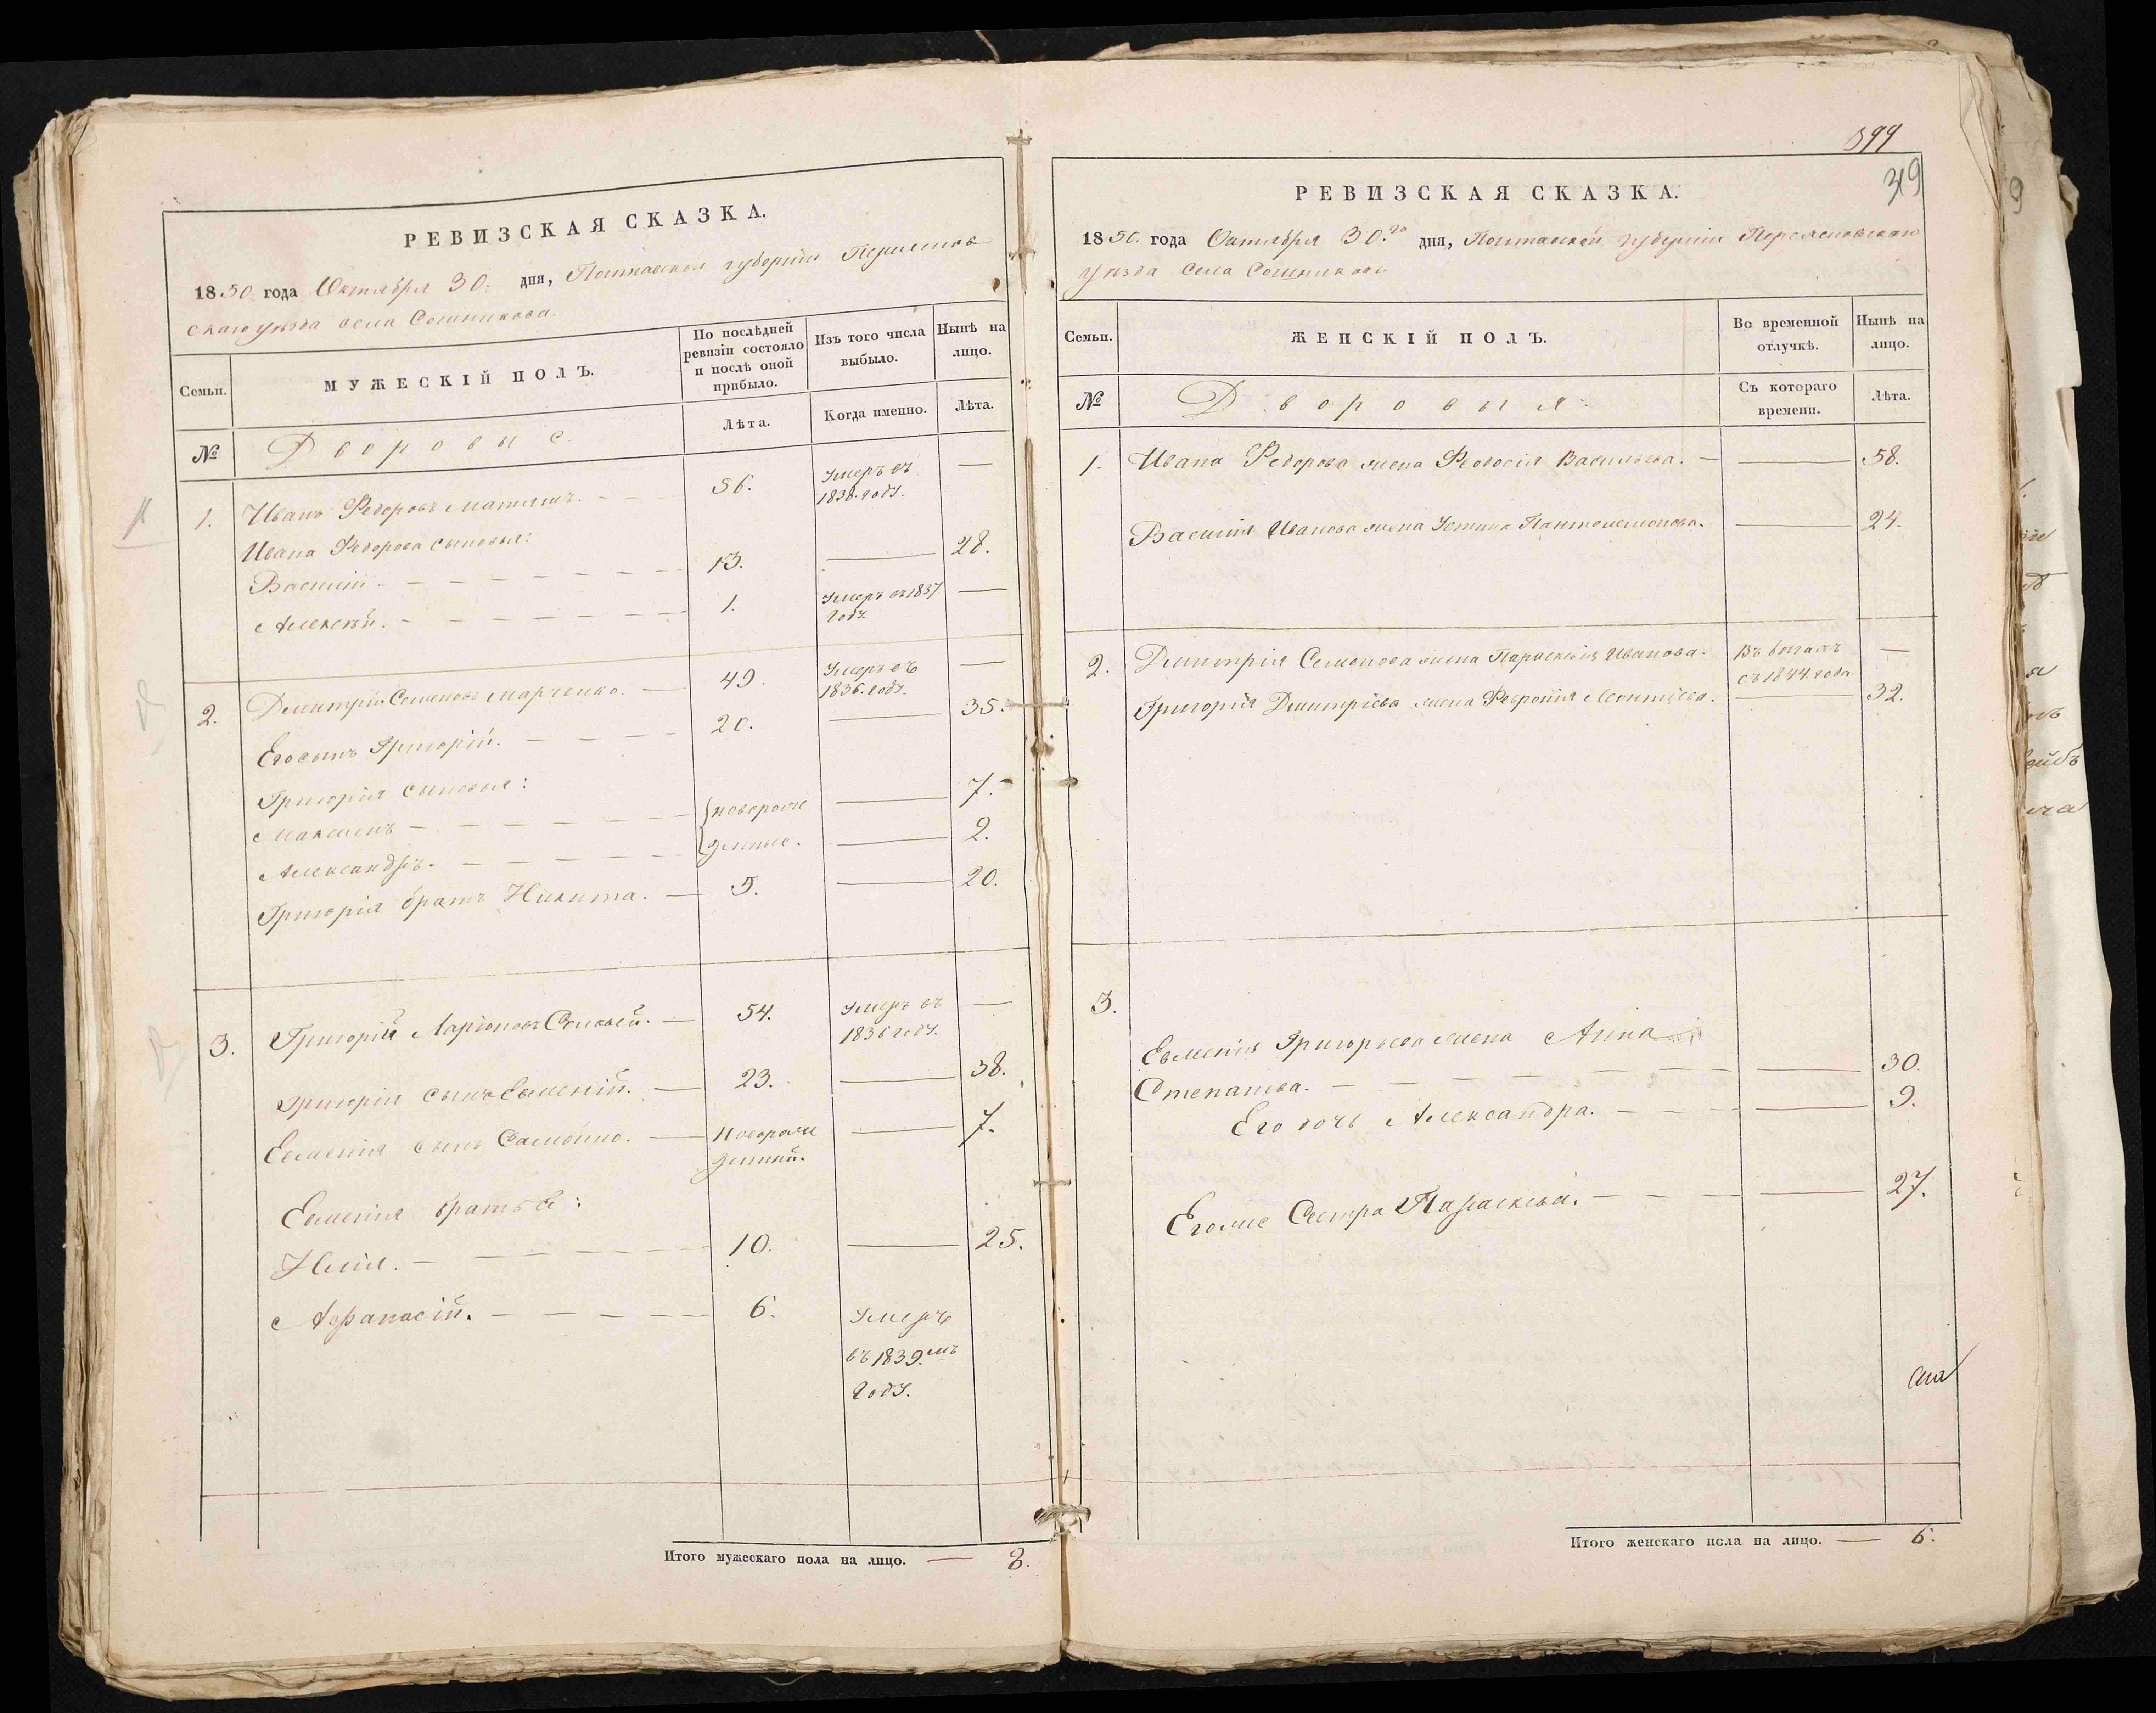 РЕВИЗСКАЯ СКАЗКА.
1850. года Октября 30. дня, Полтавской губерніи Переяслов
скаго уѣзда села Сошникова.
Семьи.
МУЖЕСКІЙ ПОЛЪ.
По послѣдней ревизіи состояло и послѣ оной прибыло.
Изъ того числа выбыло.
Нынѣ на лицо.
№
Дворовые.
Лѣта.
Когда именно.
Лѣта.
1. Иванъ Федоровъ Матяшъ. 56. Умеръ въ 1838. году. —
Ивана Федорова сыновья:
Василій. 13. — 28.
Алексѣй. 1. Умеръ въ 1837 годѣ —
2. Дмитрій Семеновъ Марченко. — 49. Умеръ въ 1836. году. —
Его сынъ Григорій. 20. — 35.
Григорія сыновья:
Максимъ новорож — 7.
Александръ. денные. — 2.
Григорія братъ Никита. — 5. — 20.
3. Григорій Ларіоновъ — 54. умеръ въ 1836 году. —
Григорія сынъ Евменій. — 23. — 38.
Евменія сынъ Самойло. — новорож — 7.
денный.
Евменія братья:
10. — 25.
Афанасій. 6. Умеръ
въ 1839.мъ
году.
Итого мужескаго пола на лицо. — 8.
399
319
РЕВИЗСКАЯ СКАЗКА.
1850. года Октября 30.го дня, Полтавской губерніи Переясловскаго
уѣзда села Сошникова.
Семьи.
ЖЕНСКІЙ ПОЛЪ.
Во временной отлучкѣ.
Нынѣ на лицо.
№
Дворовыя:
Съ котораго времени.
Лѣта.
1. Ивана Федорова жена Феодосія Васильева. — 58.
Василія Иванова жена Устина Пантелемонова. — 24.
2. Дмитрія Семенова жена Параскевія Иванова. Въ бѣгахъ —
съ 1844. года
Григорія Дмитріева жена Февронія Леонтіева. — 32.
3.
Евменія Григорьева жена Анна
Степанова. — 30.
Его дочь Александра. — 9.
Его же Сестра Параскевія. — 27.
Итого женскаго пола на лицо. — 6.